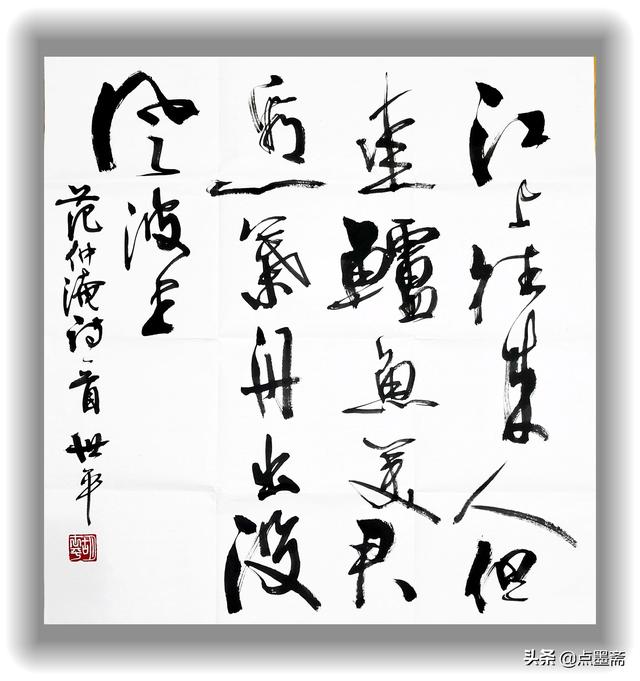 江上往来人但
爱鲈鱼美君
看一葉舟出没
风波里
范仲淹诗一首 世平
头条 @点墨斋